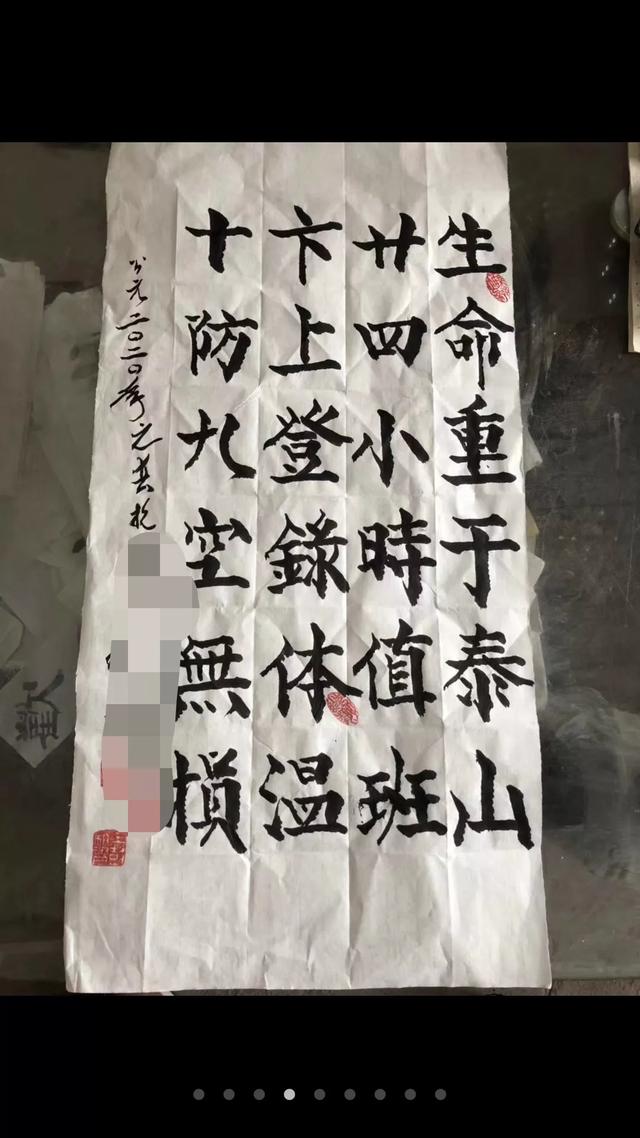 生命重于泰山
廿四小時值班
卞上登錄体温
十防九空無損
公元二〇二〇年之